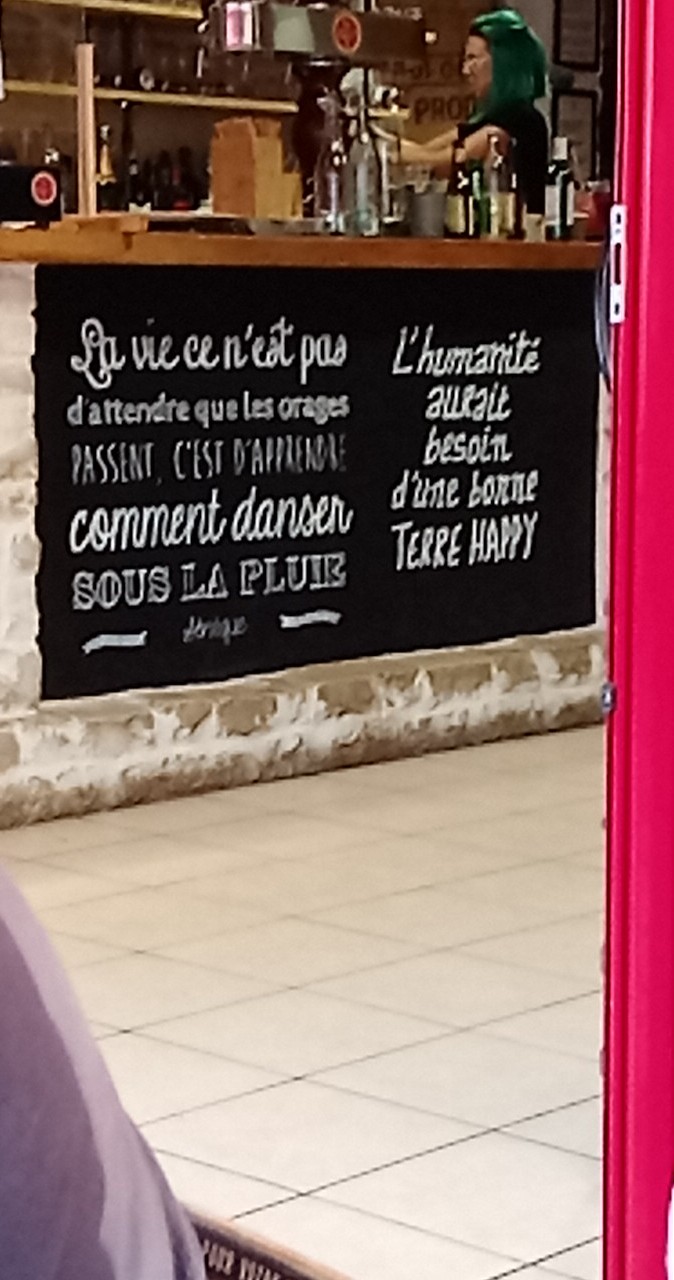 PROD
La vie ce n'est pas
d'attendre que les orages
PASSENT, C'EST D'APPRENDRE
comment danser
SOUS LA PLUIE
Sénèque
L'humanité
aurait
besoin
d'une bonne
TERRE HAPPY
POUR VOTRE